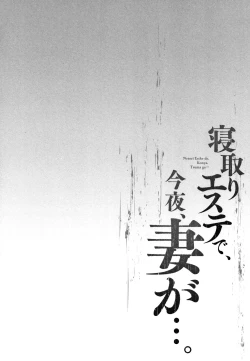 寝取り
エステで、
今夜、
妻が…。
Netori Esthe de,
Konya,
Tsuma ga…